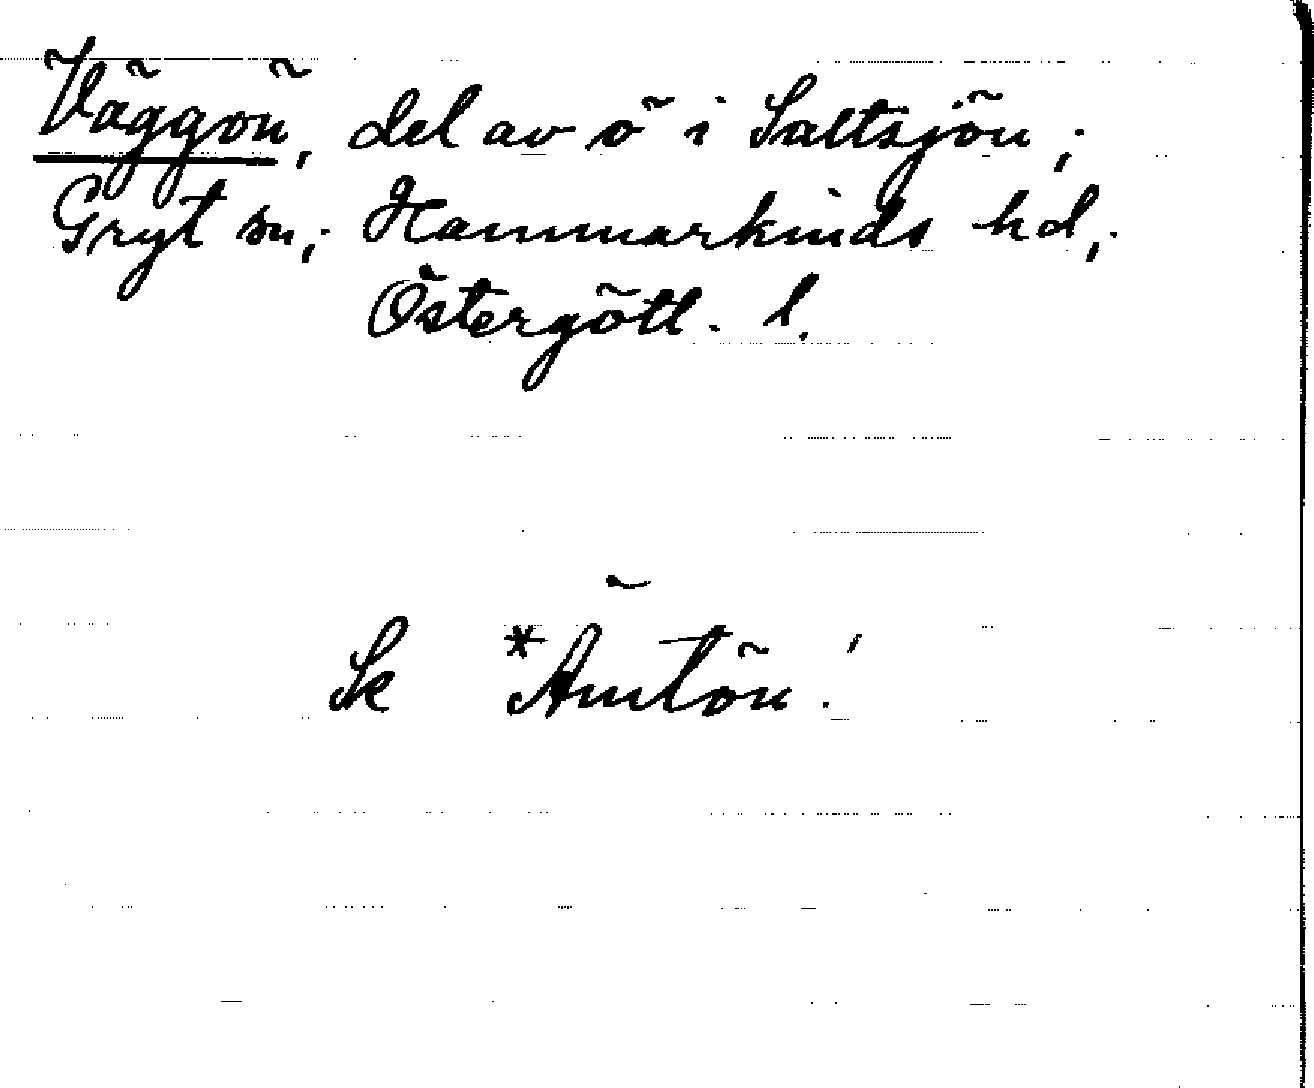 Väggön, del av ö i Saltsjön;
Gryt sn; Hammarkinds hd;
Östergötl. l.
Se *Ämtön!